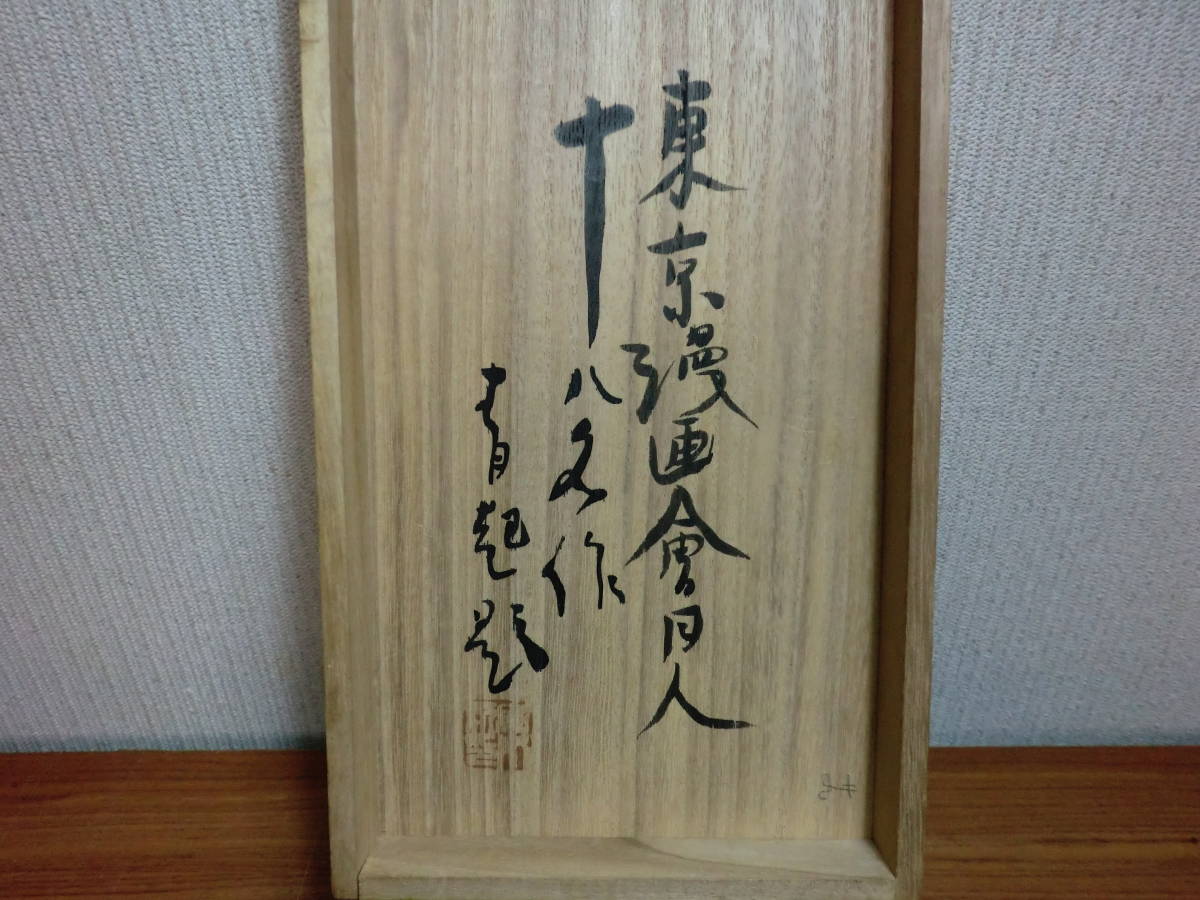 東京漫画會同人
十八名作
青起題